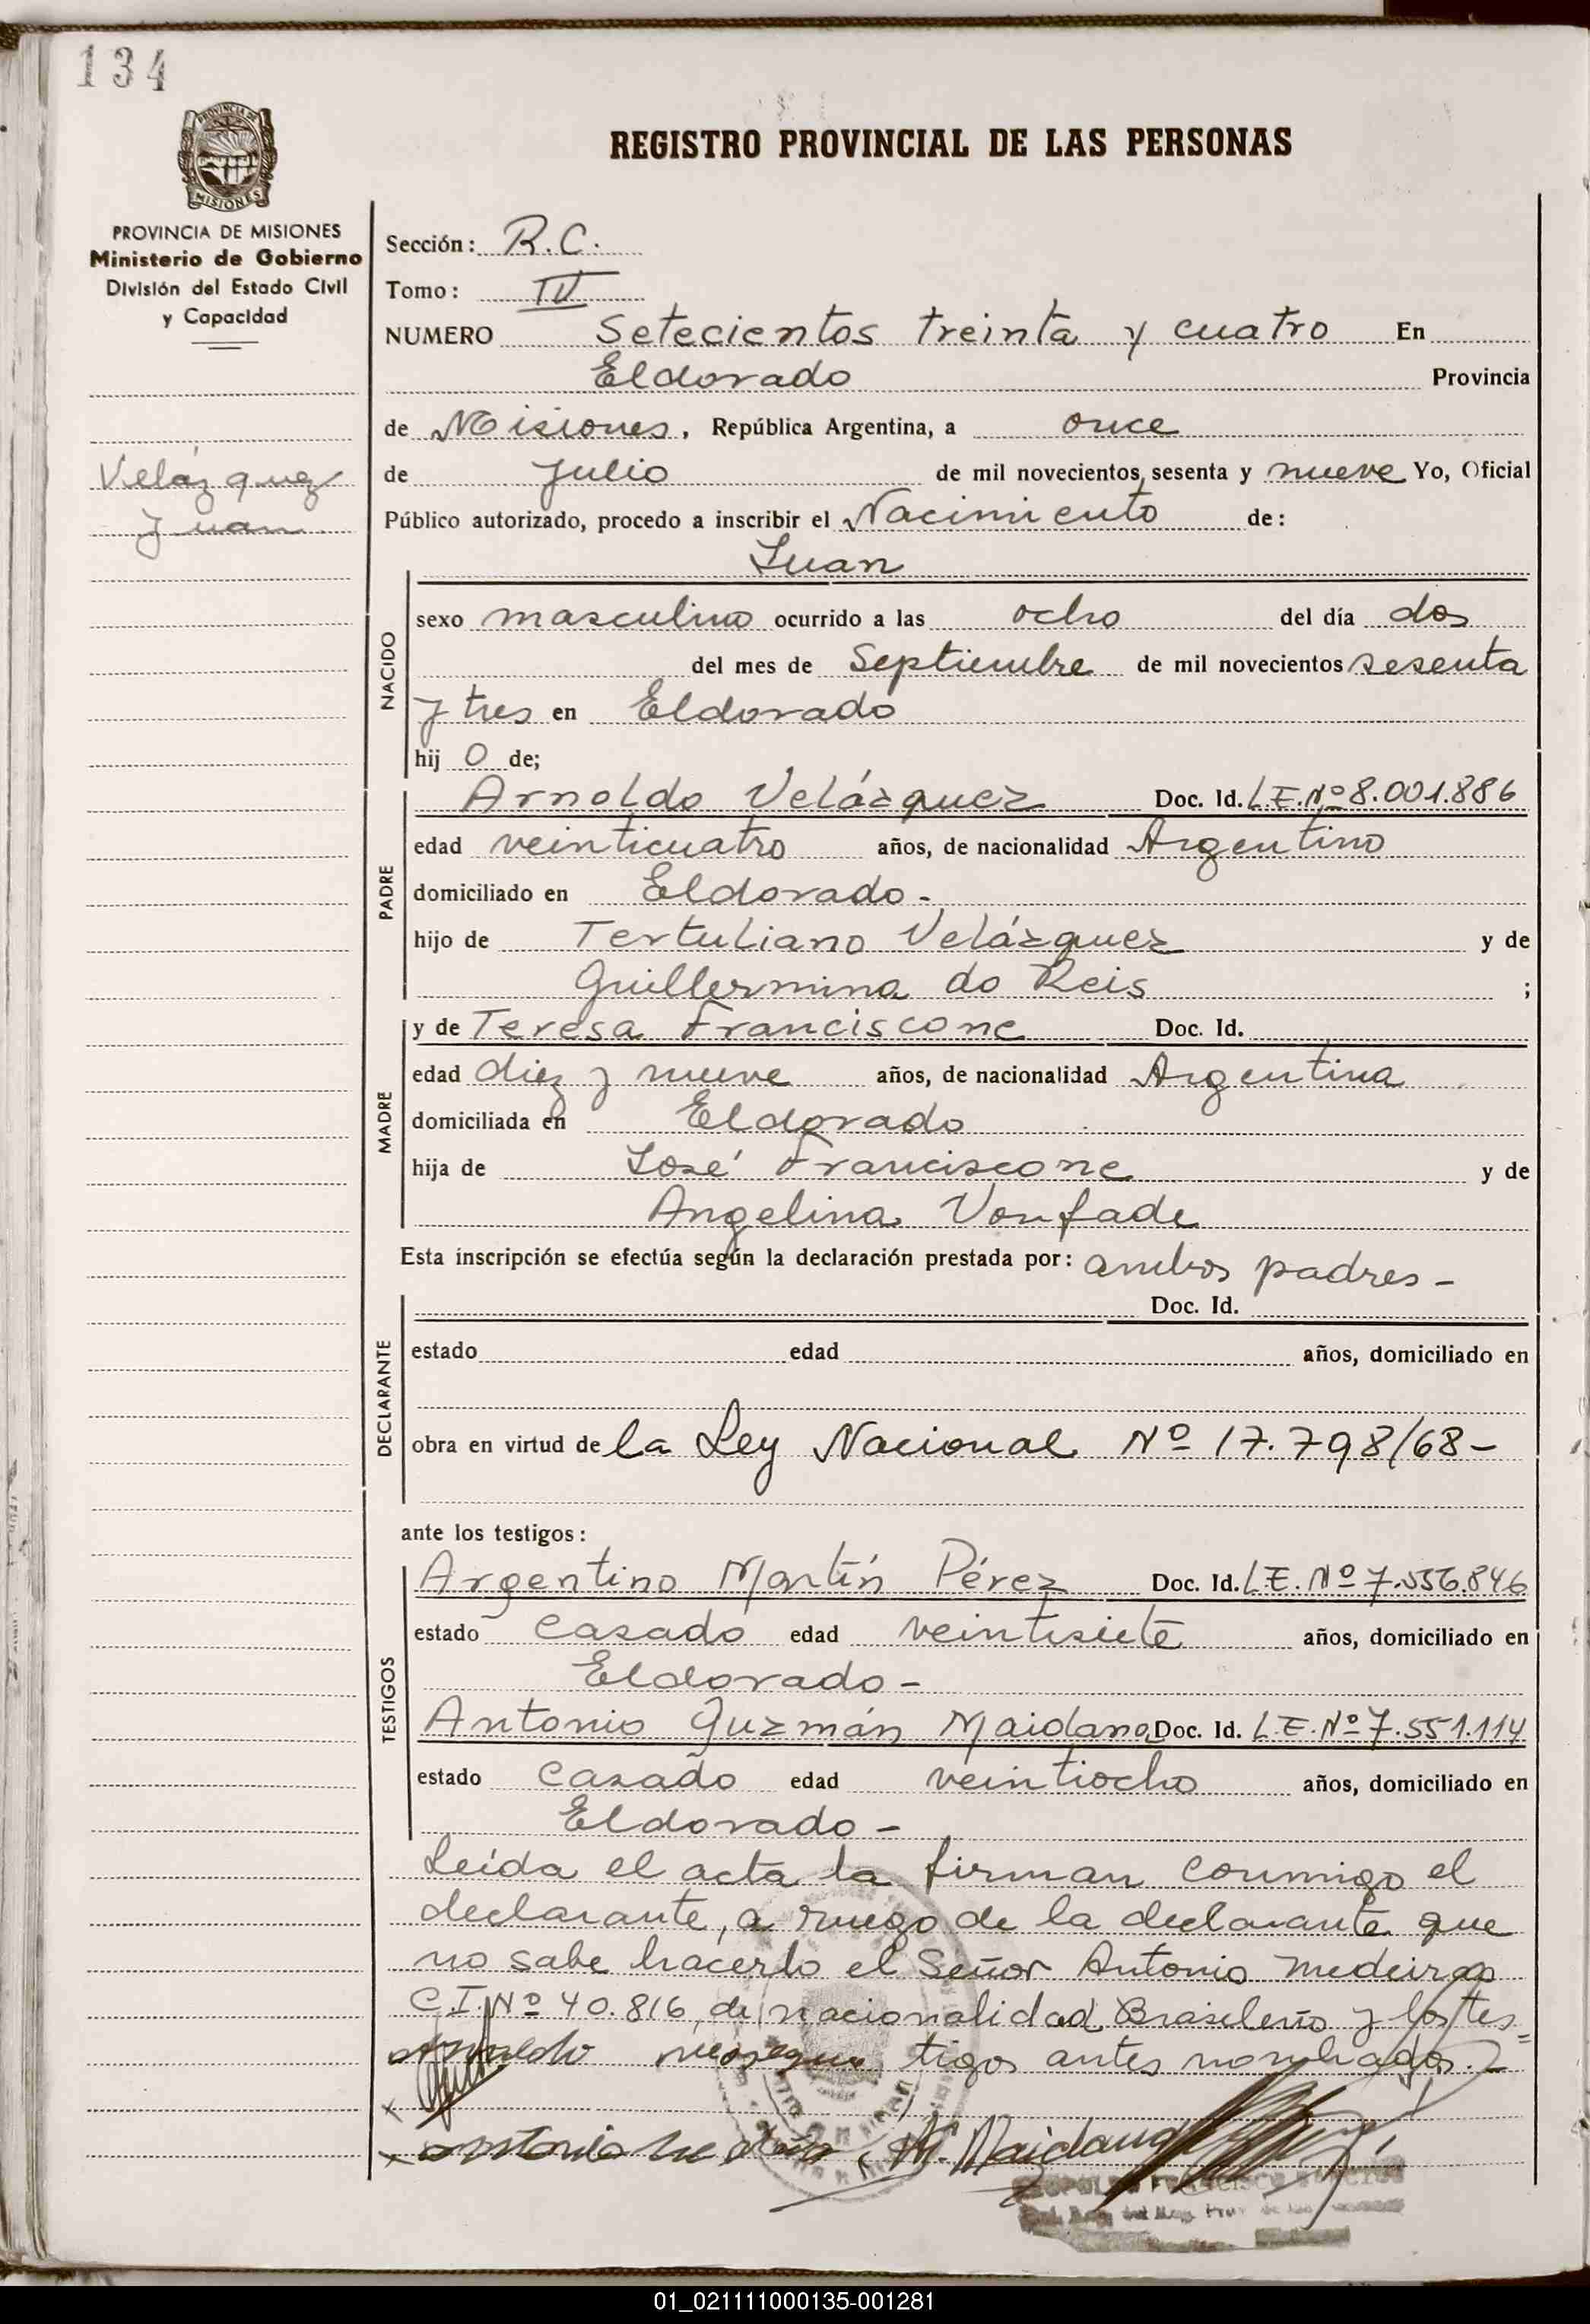 134
PROVINCIA DE
MISIONES
REGISTRO PROVINCIAL DE LAS PERSONAS
PROVINCIA DE MISIONES
Ministerio de Gobierno
División del Estado Civil
y Capacidad
Velázquez
Juan
Sección: R.C.
Tomo: IV
NUMERO Setecientos treinta y cuatro En
Eldorado Provincia
de Misiones, República Argentina, a once
de Julio de mil novecientos sesenta y nueve Yo, Oficial
Público autorizado, procedo a inscribir el Nacimiento de:
Juan
NACIDO
sexo masculino ocurrido a las ocho del día dos
del mes de Septiembre de mil novecientos sesenta
y tres en Eldorado
hij o de;
PADRE
Arnoldo Velázquez Doc. Id. L.E. Nº 8.001.886
edad veinticuatro años, de nacionalidad Argentino
domiciliado en Eldorado -
hijo de Tertuliano Velázquez y de
Guillermina do Reis ;
MADRE
y de Teresa Franciscone Doc. Id.
edad diez y nueve años, de nacionalidad Argentina
domiciliada en Eldorado
hija de José Franciscone y de
Angelina Vonfade
Esta inscripción se efectúa según la declaración prestada por: ambos padres -
DECLARANTE
Doc. Id.
estado edad años, domiciliado en
obra en virtud de la Ley Nacional Nº 17.798/68-
ante los testigos:
TESTIGOS
Argentino Martín Pérez Doc. Id. L.E. Nº 7.556.846
estado casado edad veintisiete años, domiciliado en
Eldorado -
Antonio Guzmán Maidana Doc. Id. L.E. Nº 7.551.114
estado casado edad veintiocho años, domiciliado en
Eldorado -
Leída el acta la firman conmigo el
declarante, a ruego de la declarante que
no sabe hacerlo el Señor Antonio Medeiros
C.I. Nº 40.816, de nacionalidad Brasileño y los tes=
tigos antes nombrados.-
A. Maidana
01_021111000135-001281